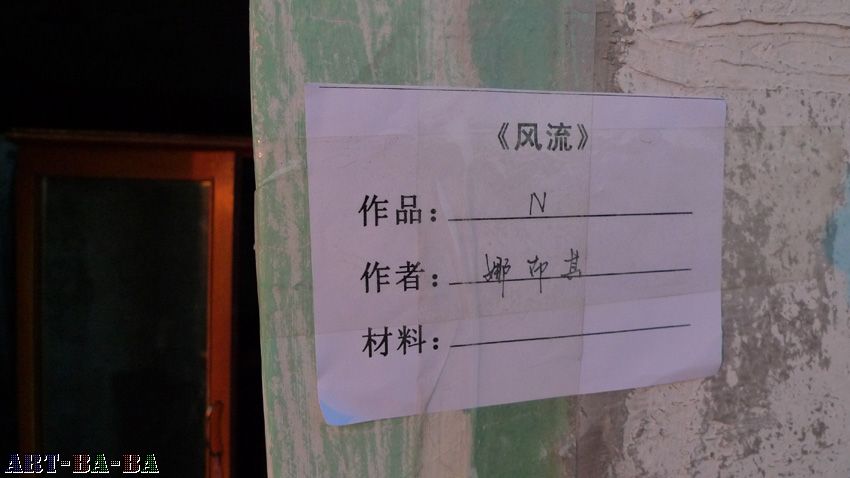 《风流》
作品：N
作者：娜布其
材料：
ART-BA-BA